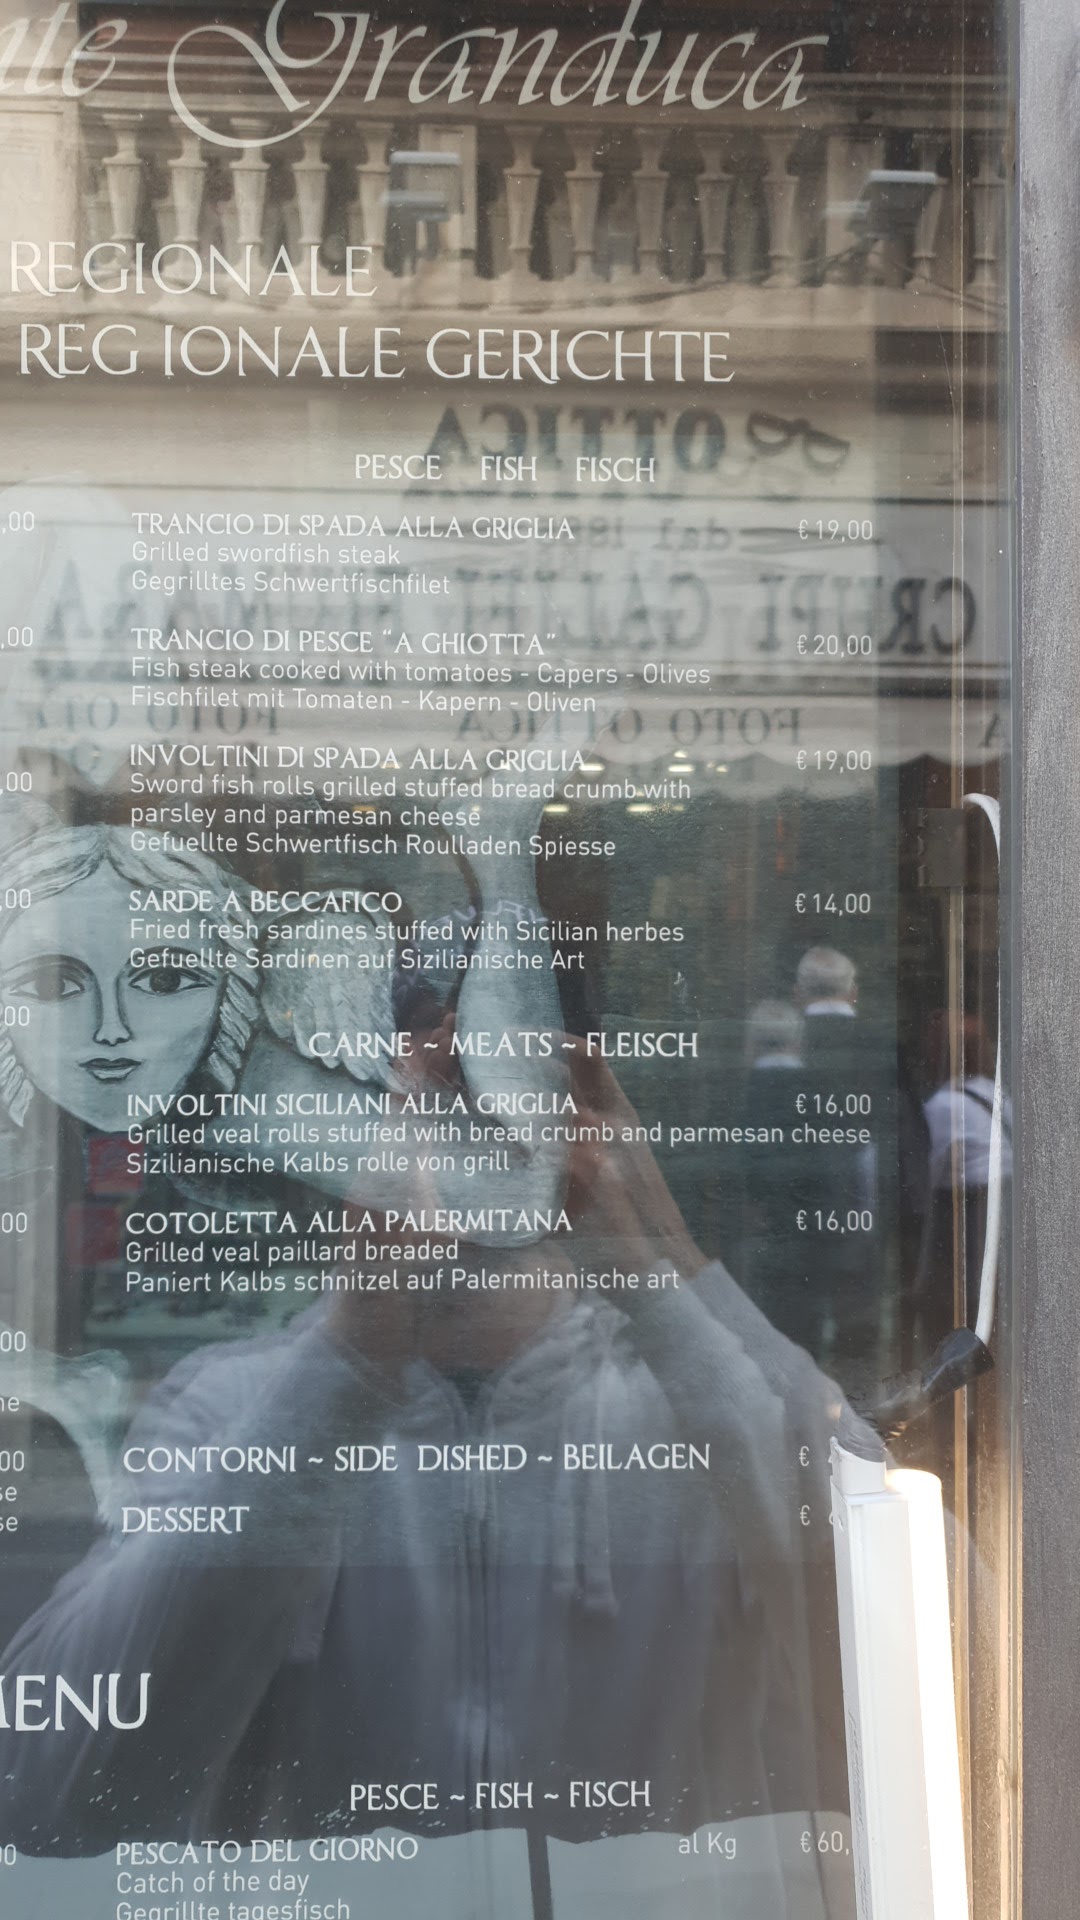 Granduca
REGIONALE
REGIONALE GERICHTE
PESCE FISH FISCH
,00 TRANCIO DI SPADA ALLA GRIGLIA € 19,00
Grilled swordfish steak
Gegrilltes Schwertfischfilet
,00 TRANCIO DI PESCE "A GHIOTTA" € 20,00
Fish steak cooked with tomatoes - Capers - Olives
Fischfilet mit Tomaten - Kapern - Oliven
INVOLTINI DI SPADA ALLA GRIGLIA € 19,00
,00 Sword fish rolls grilled stuffed bread crumb with
parsley and parmesan cheese
Gefuellte Schwertfisch Roulladen Spiesse
,00 SARDE A BECCAFICO € 14,00
Fried fresh sardines stuffed with Sicilian herbes
Gefuellte Sardinen auf Sizilianische Art
00
CARNE ~ MEATS ~ FLEISCH
INVOLTINI SICILIANI ALLA GRIGLIA € 16,00
Grilled veal rolls stuffed with bread crumb and parmesan cheese
Sizilianische Kalbs rolle von grill
00 COTOLETTA ALLA PALERMITANA € 16,00
Grilled veal paillard breaded
Paniert Kalbs schnitzel auf Palermitanische art
00
00 CONTORNI ~ SIDE DISHED ~ BEILAGEN €
DESSERT €
MENU
PESCE ~ FISH ~ FISCH
PESCATO DEL GIORNO al Kg € 60,
Catch of the day
Gegrillte tagesfisch
OTTICA
dal
FOTO OTTICA